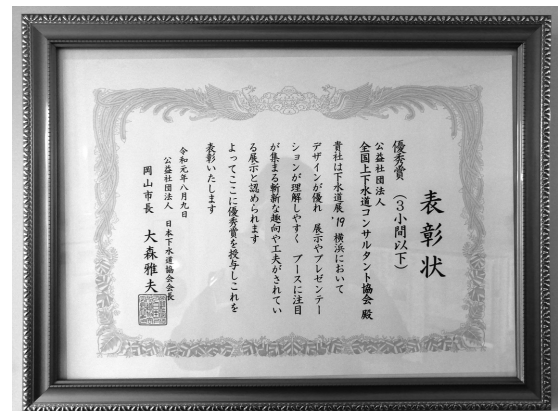 表彰状
優秀賞（３小間以下）
公益社団法人
全国上下水道コンサルタント協会 殿
貴社は下水道展'19 横浜において
デザインが優れ 展示やプレゼンテー
ションが理解しやすく ブースに注目
が集まる斬新な趣向や工夫がされてい
る展示と認められます
よってここに優秀賞を授与しこれを
表彰いたします
令和元年八月九日
公益社団法人 日本下水道協会会長
岡山市長 大森雅夫